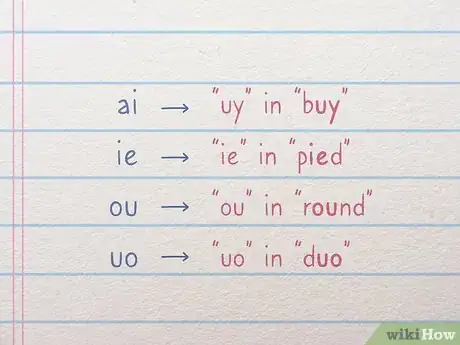 ai → "uy" in "buy"
ie → "ie" in "pied"
ou → "ou" in "round"
uo → "uo" in "duo"
wikiHow